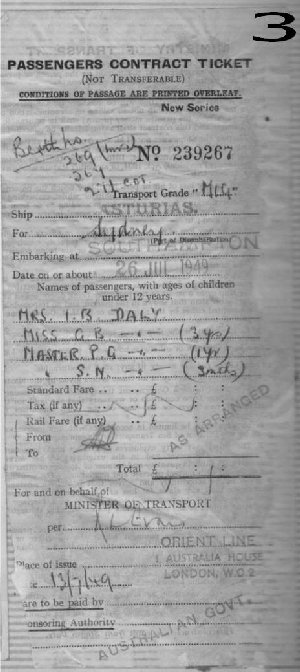 3
PASSENGERS CONTRACT TICKET
(NOT TRANSFERABLE)
CONDITIONS OF PASSAGE ARE PRINTED OVERLEAF.
New Series
Berth No.
269
No. 239267
Transport Grade "
Ship ASTURIAS.
For Sydney
(Port of Disembarkation)
Embarking at SOUTHAMPTON
Date on or about 26 JUL 1949
Names of passengers, with ages of children
under 12 years.
MRS. I. B. DALY
MISS G B -"- (3 yrs)
MASTER. P. G -"- (1 yr)
" S. N. -"- (3 mths)
Standard Fare .. .. £ : :
Tax (if any) .. £ : :
Rail Fare (if any) .. £ : :
From
To
AS ARRANGED
Total £ : :
For and on behalf of
MINISTER OF TRANSPORT
per
ORIENT LINE
AUSTRALIA HOUSE
LONDON, W.C.2
Place of issue
13/7/49
are to be paid by
onsoring Authority
AUSTRALIAN GOVT.